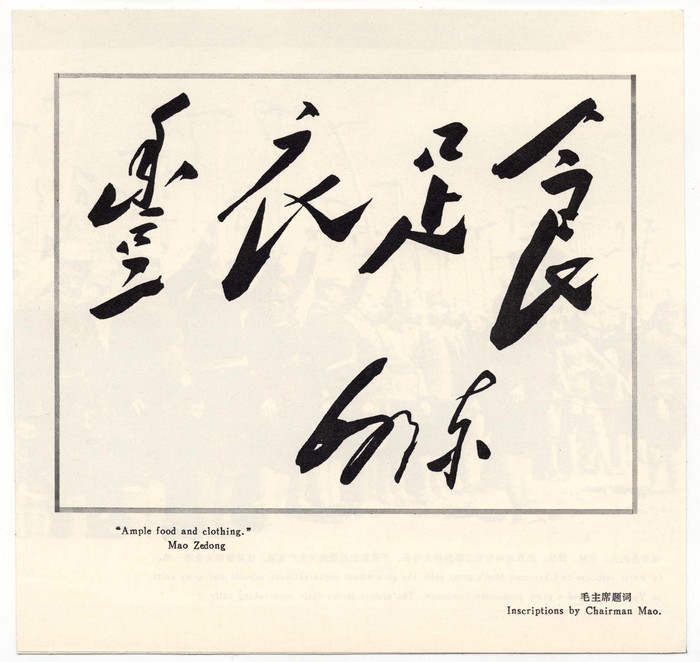 豐衣足食
毛泽东
“Ample food and clothing.”
Mao Zedong
毛主席题词
Inscriptions by Chairman Mao.